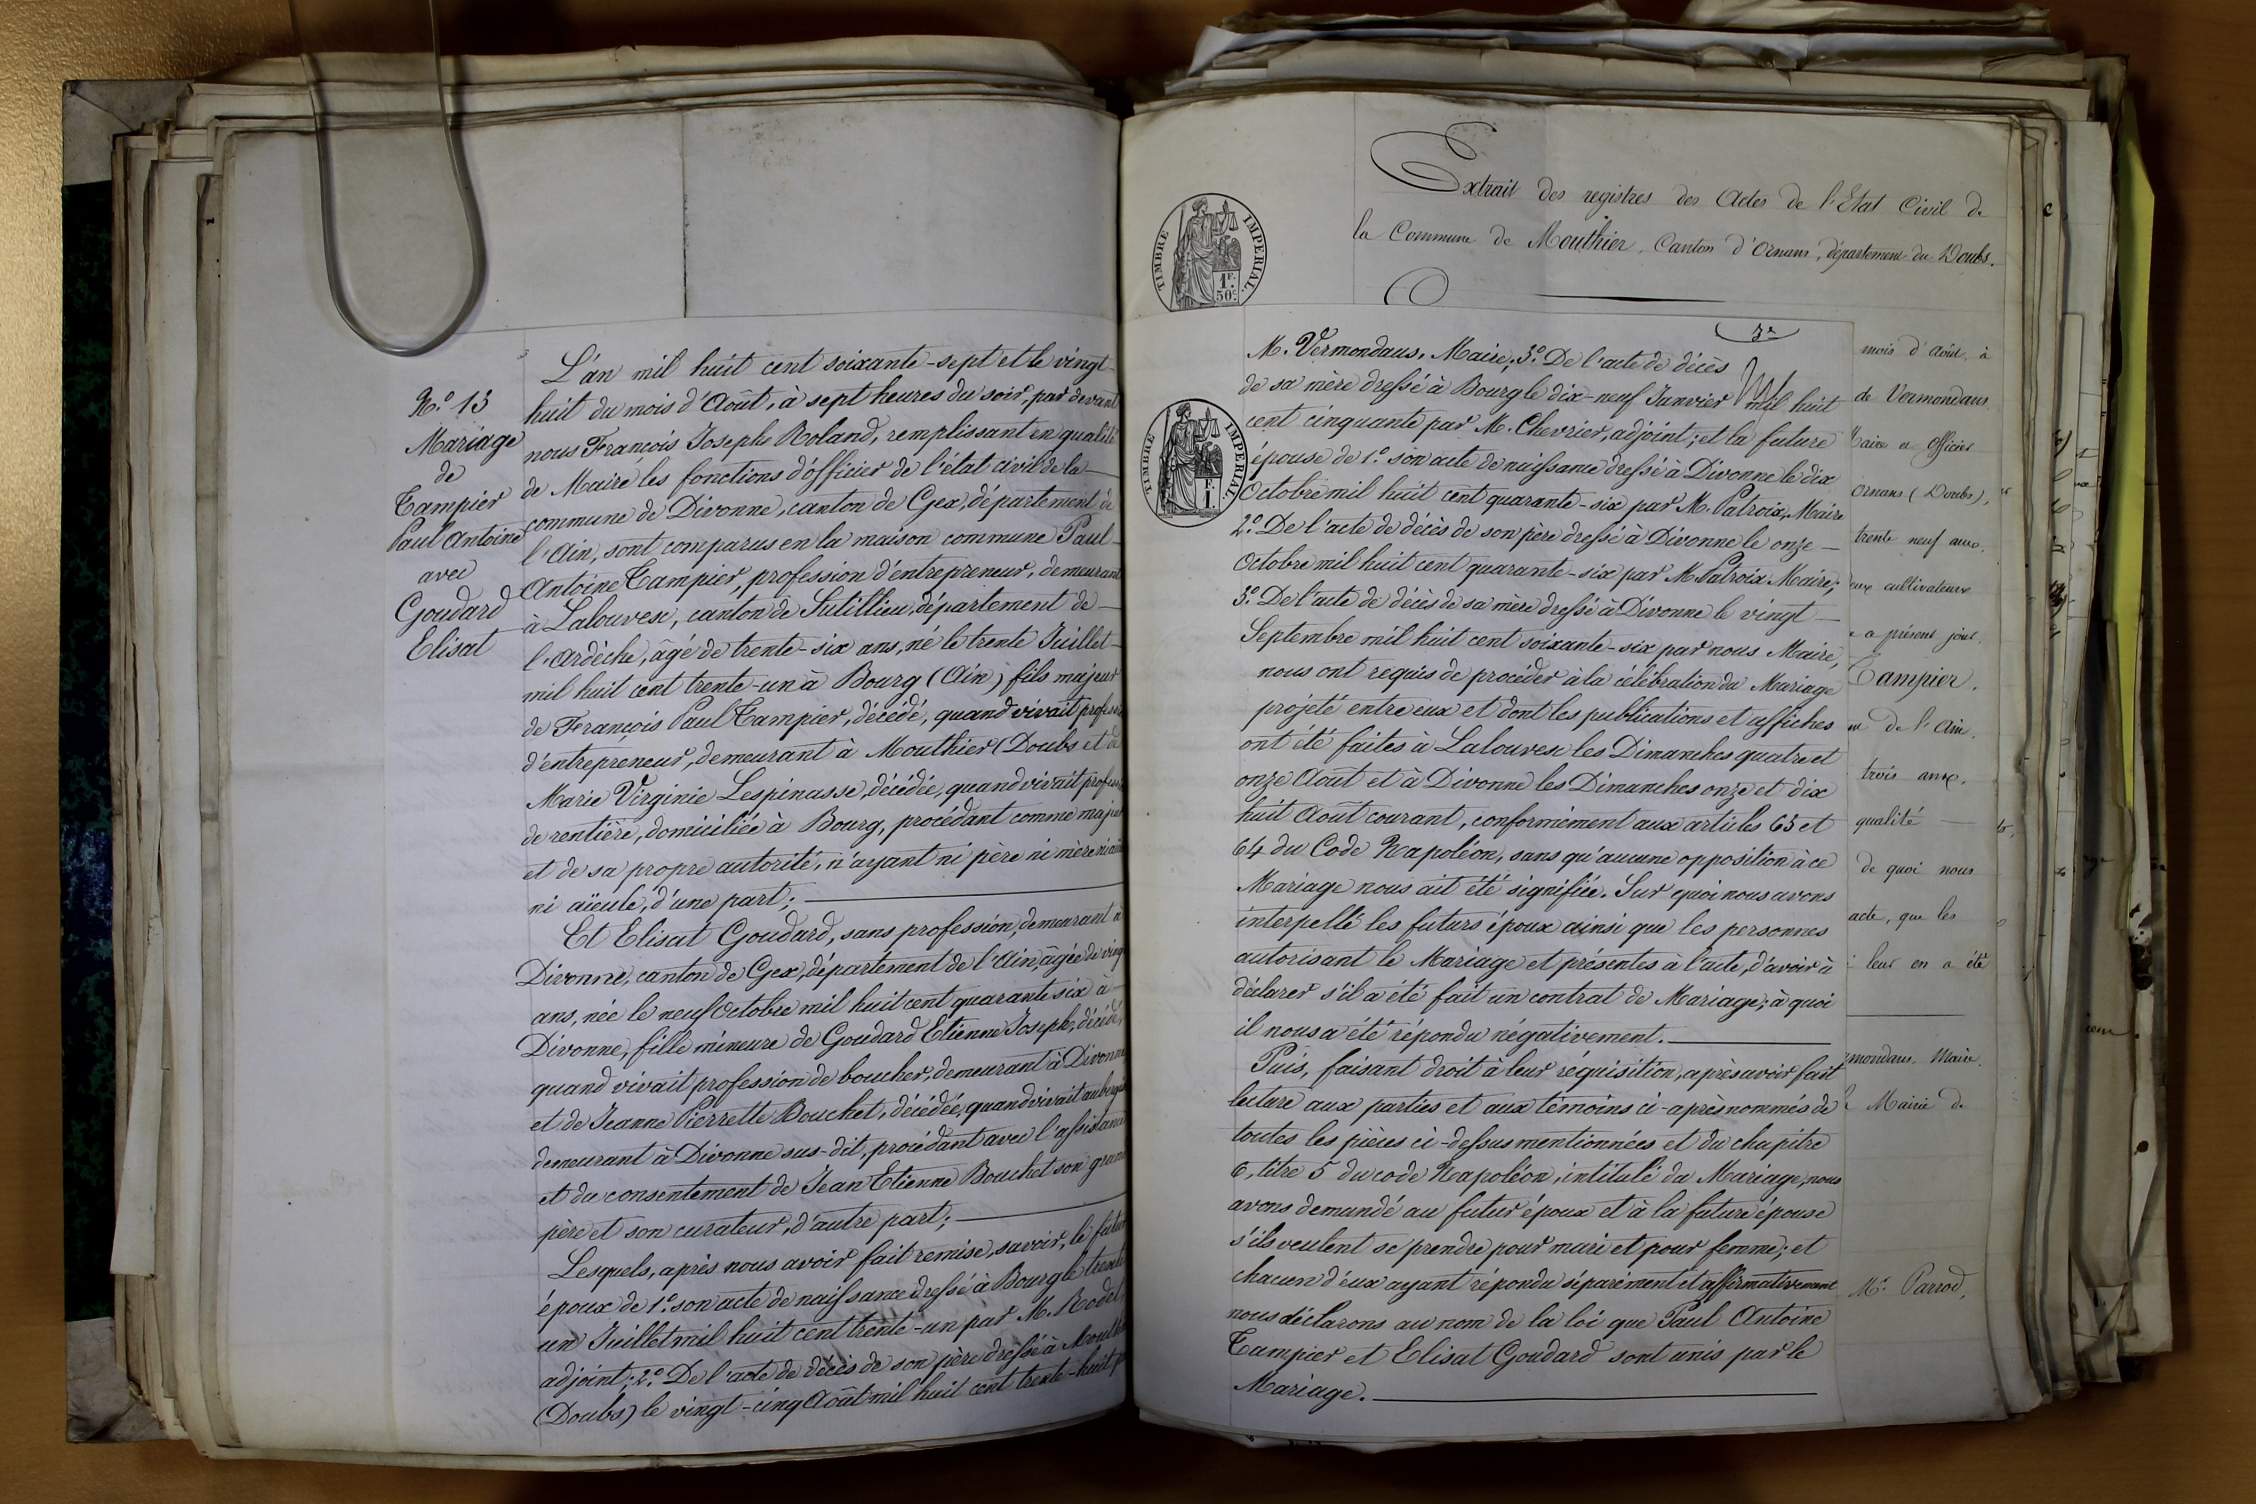 N.º 13
Mariage
de
Tampier
Paul Antoine
avec
Goudard
Elisat
L'an mil huit cent soixante-sept et le vingt-
huit du mois d'Août, à sept heures du soir, par devant
nous François Joseph Roland, remplissant en qualité
de Maire les fonctions d'officier de l'état civil de la
commune de Divonne, canton de Gex, département de
l'Ain, sont comparus en la maison commune Paul
Antoine Tampier, profession d'entrepreneur, demeurant
à Lalouvesc, canton de Satillieu, département de
l'Ardèche, âgé de trente-six ans, né le trente Juillet
mil huit cent trente-un à Bourg (Ain) fils majeur
de François Paul Tampier, décédé, quand vivait profess
d'entrepreneur, demeurant à Mouthier (Doubs et de
Marie Virginie Lespinasse, décédée, quand vivait profess
de rentière, domiciliée à Bourg, procédant comme majeur
et de sa propre autorité, n'ayant ni père ni mère ni aïeul
ni aïeule, d'une part;
Et Elisat Goudard, sans profession, demeurant à
Divonne, canton de Gex, département de l'Ain, âgée de ving
ans, née le neuf Octobre mil huit cent quarante six à
Divonne, fille mineure de Goudard Etienne Joseph, décédé,
quand vivait profession de boucher, demeurant à Divonne
et de Jeanne Pierrette Bouchet, décédée, quand vivait aubergis
demeurant à Divonne sus-dit, procédant avec l'assistance
et du consentement de Jean Etienne Bouchet son grand
père et son curateur, d'autre part;
Lesquels, après nous avoir fait remise, savoir, le futur
époux de 1.º son acte de naissance dressé à Bourg le trente
un Juillet mil huit cent trente-un par M. Rodet
adjoint; 2.º De l'acte de décès de son père dressé à Mouth
(Doubs) le vingt-cinq Août mil huit cent trente-huit p
Extrait des registres des Actes de l'Etat Civil de
la Commune de Mouthier, Canton d'Ornans, département du Doubs.
TIMBRE IMPERIAL
1F.
50c.
TIMBRE IMPERIAL
1F.
M. Vermondans, Maire; 3.º De l'acte de décès
de sa mère dressé à Bourg le dix-neuf Janvier mil huit
cent cinquante par M. Chevrier, adjoint; et la future
épouse de 1.º son acte de naissance dressé à Divonne le dix
Octobre mil huit cent quarante-six par M. Patroix, Maire
2.º De l'acte de décès de son père dressé à Divonne le onze
Octobre mil huit cent quarante-six par M. Patroix Maire;
3.º De l'acte de décès de sa mère dressé à Divonne le vingt
Septembre mil huit cent soixante-six par nous Maire,
nous ont requis de procéder à la célébration du Mariage
projeté entre eux et dont les publications et affiches
ont été faites à Lalouvesc les Dimanches quatre et
onze Août et à Divonne les Dimanches onze et dix
huit Août courant, conformément aux articles 63 et
64 du Code Napoléon, sans qu'aucune opposition à ce
Mariage nous ait été signifiée. Sur quoi nous avons
interpellé les futurs époux ainsi que les personnes
autorisant le Mariage et présentes à l'acte, d'avoir à
déclarer s'il a été fait un contrat de Mariage; à quoi
il nous a été répondu négativement.
Puis, faisant droit à leur réquisition, après avoir fait
lecture aux parties et aux témoins ci-après nommés de
toutes les pièces ci-dessus mentionnées et du chapitre
6, titre 5 du code Napoléon, intitulé du Mariage, nous
avons demandé au futur époux et à la future épouse
s'ils veulent se prendre pour mari et pour femme; et
chacun d'eux ayant répondu séparément et affirmativement
nous déclarons au nom de la loi que Paul Antoine
Tampier et Elisat Goudard sont unis par le
Mariage.
mois d'Août, à
de Vermondans
aire et Officier
Ornans (Doubs),
trente neuf ans.
eux cultivateurs
a présent jour
Tampier,
de l'Ain,
trois ans,
qualité
de quoi nous
acte, que les
leur en a été
mondans, Maire.
Mairie de
Mr. Parrod,